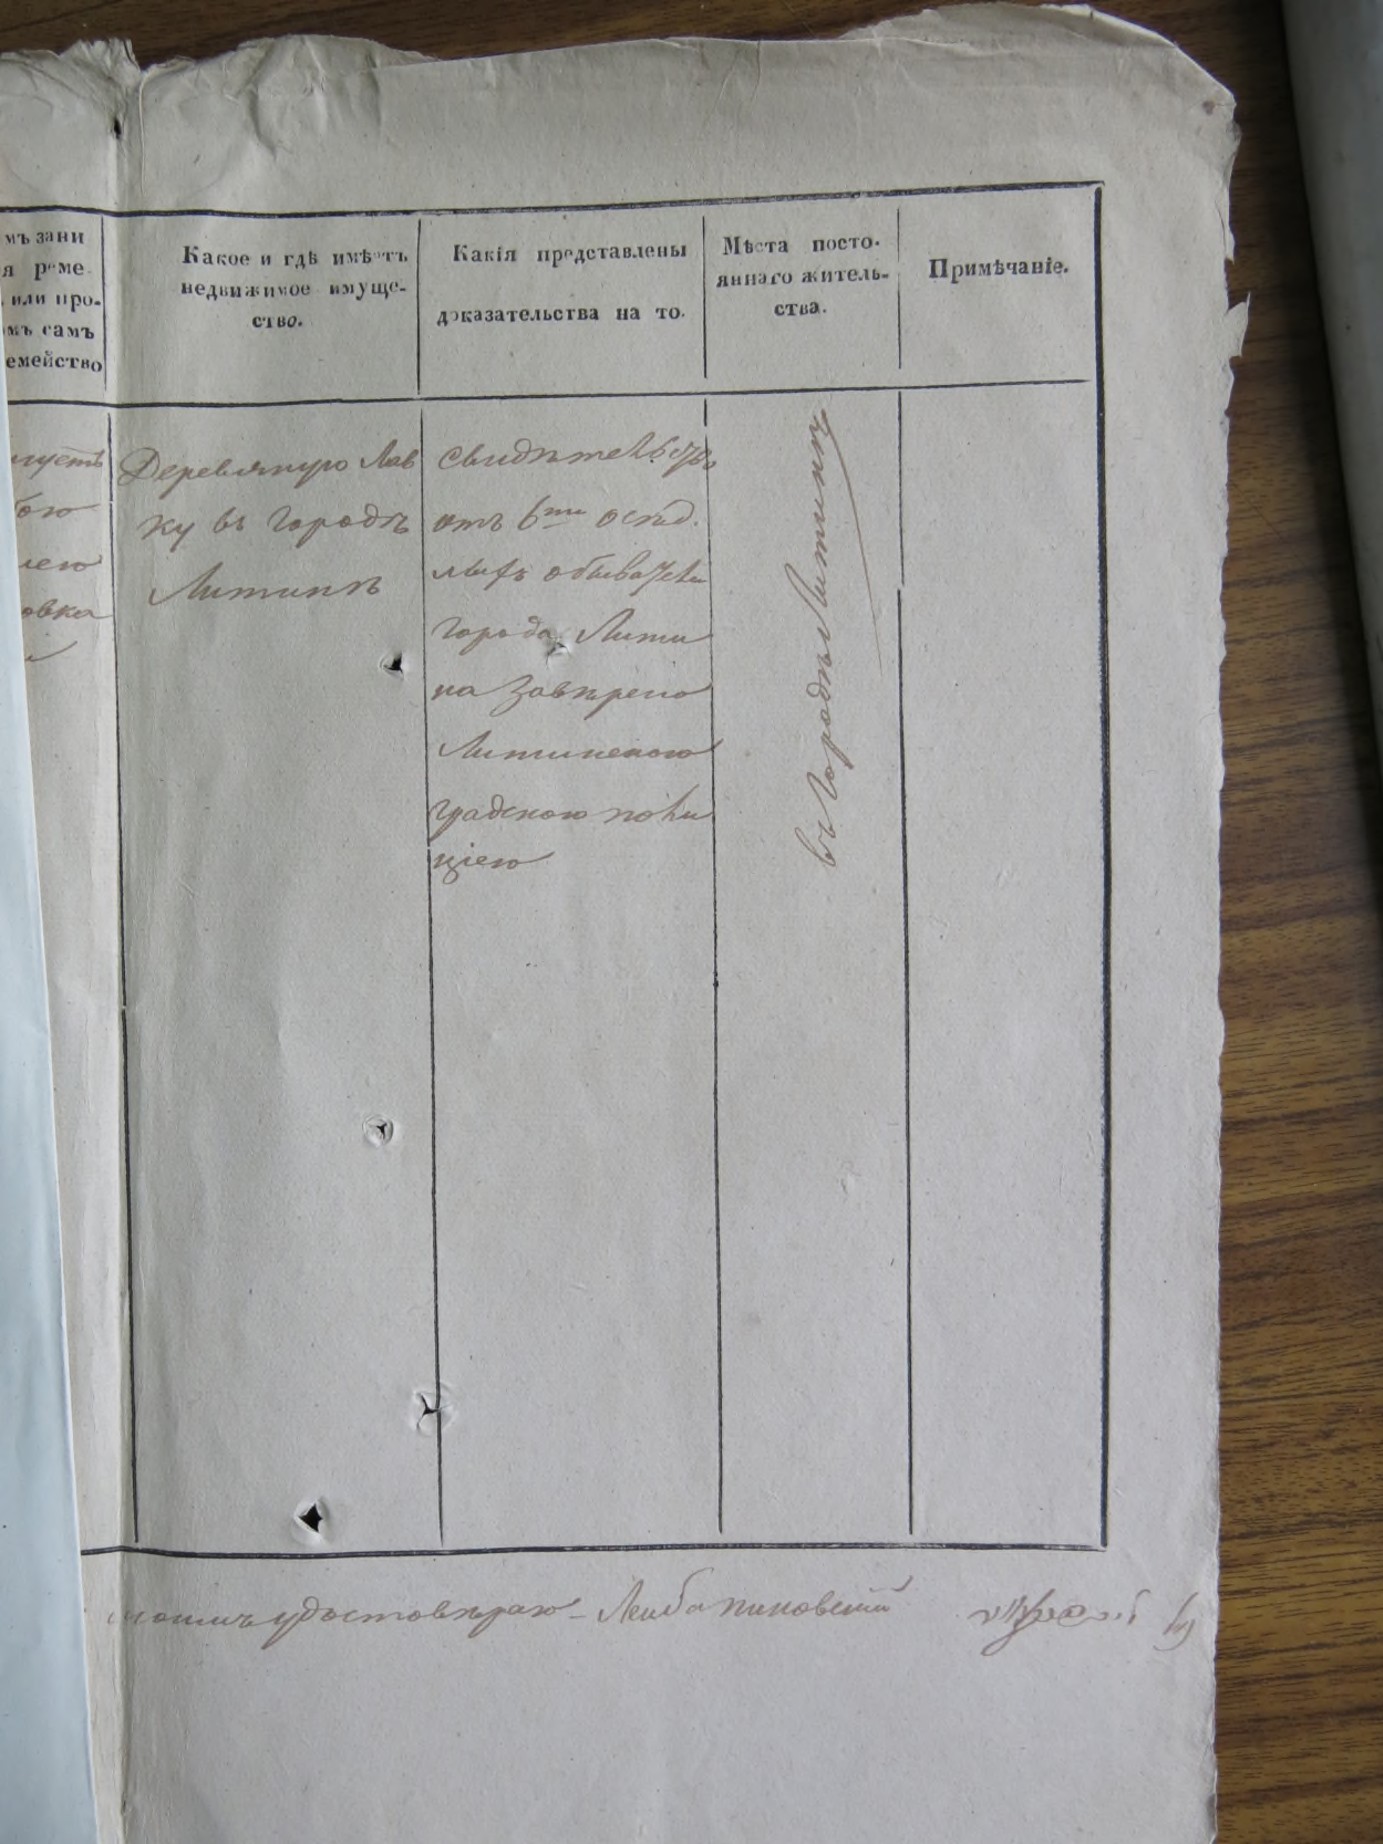 мъ зани
я реме-
или про-
омъ самъ
емейство
Какое и гдѣ имѣетъ
недвижимое имуще-
ство.
Какія представлены
доказательства на то.
Мѣста посто-
яннаго житель-
ства.
Примѣчаніе.
бою
лею
овка
Деревянную Лав
ку въ городѣ
Литинѣ
Свидѣтельство
отъ 6ти осѣд.
лыхъ обыватели
города Лити
на Завѣрено
Литинскою
градскою поли
циею
въ Городѣ Литинѣ
удостовѣраю - Лейба Пиковский